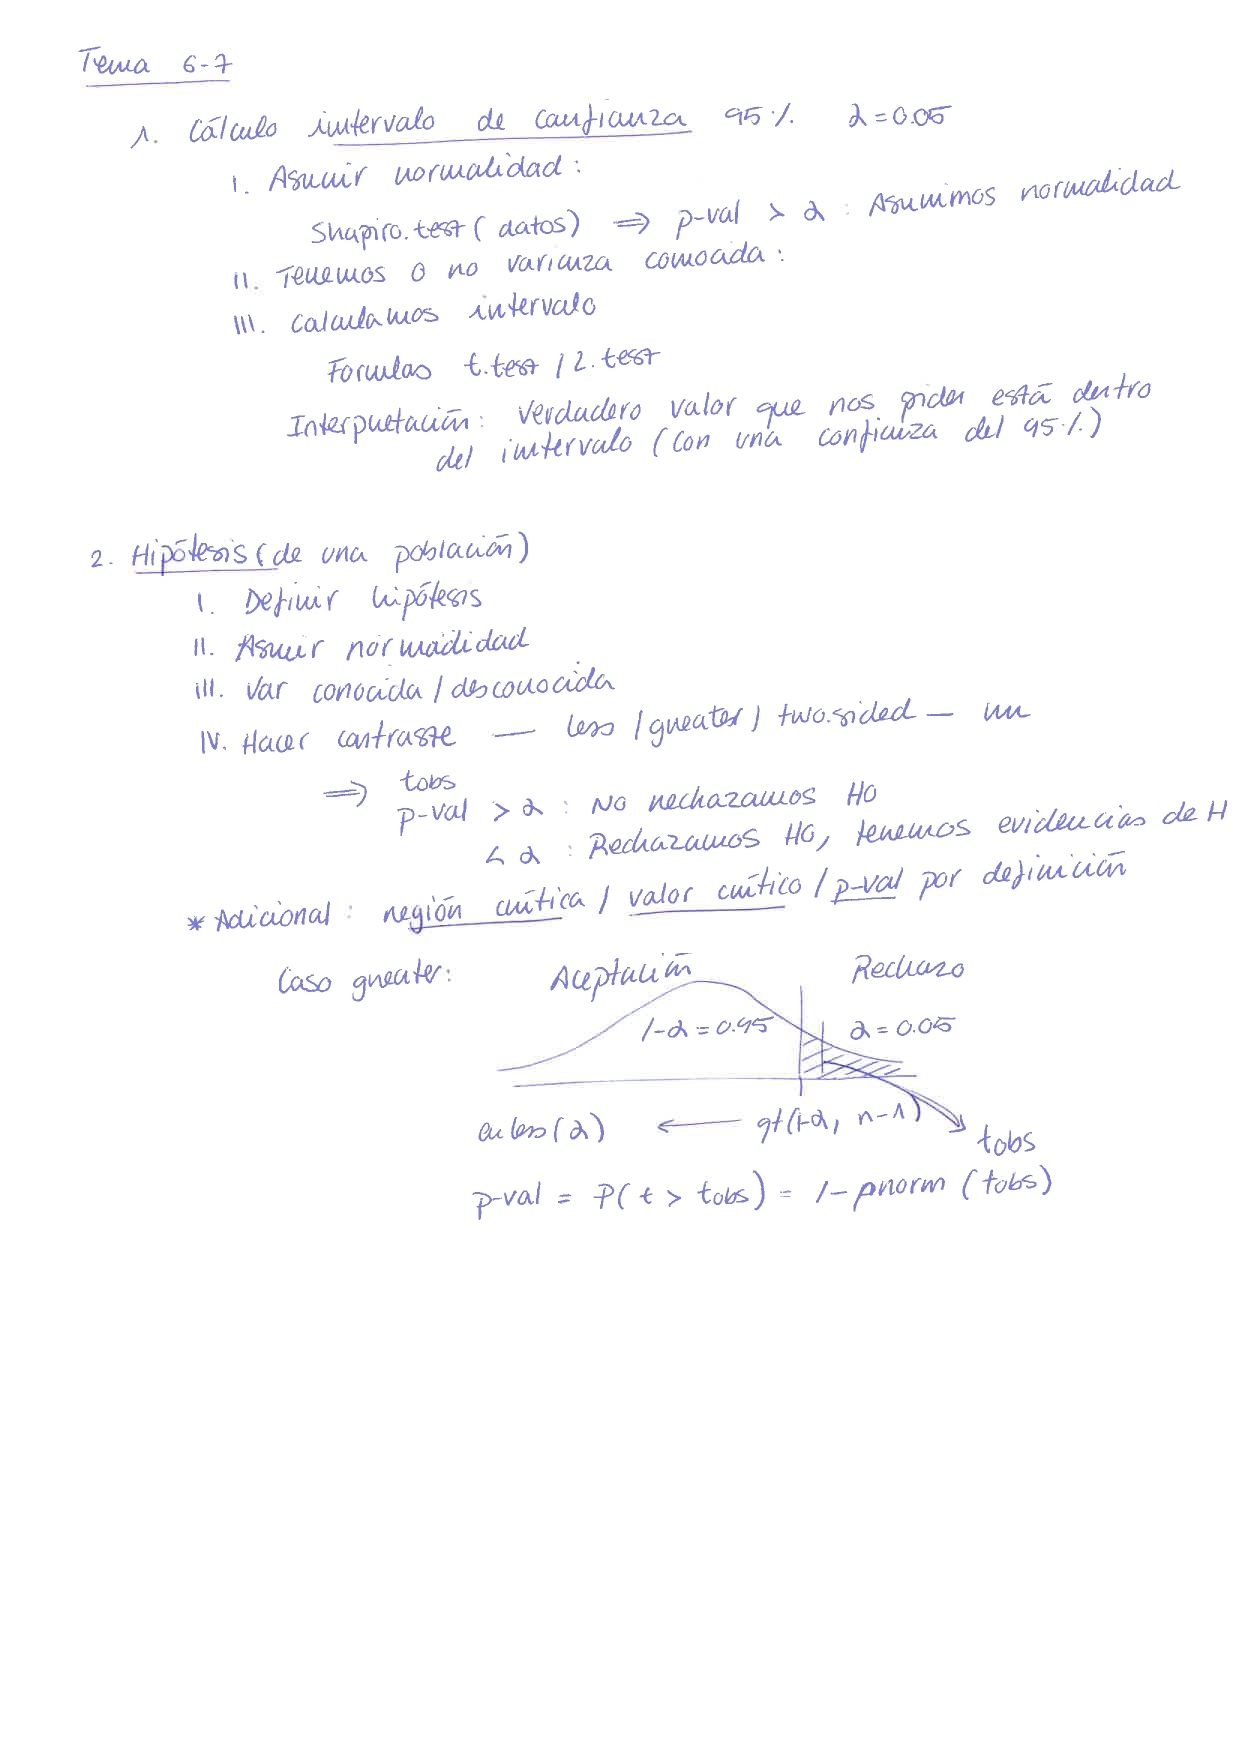 Tema 6-7
1. Cálculo intervalo de confianza 95% α=0.05
I. Asumir normalidad:
Shapiro.test(datos) ⇒ p-val > α : Asumimos normalidad
II. Tenemos o no varianza conocida:
III. Calculamos intervalo
Formulas t.test / z.test
Interpretación: Verdadero valor que nos piden está dentro
del intervalo (con una confianza del 95%)
2. Hipótesis (de una población)
I. Definir hipótesis
II. Asumir normadidad
III. Var conocida / desconocida
IV. Hacer contraste — less / greater / two.sided —
⇒ tobs
p-val > α : No rechazamos H0
< α : Rechazamos H0, tenemos evidencias de H
* Adicional: región crítica / valor crítico / p-val por definición
Caso greater: Aceptación Rechazo
1-α = 0.95 α = 0.05
en less (α) ← qt(1-α, n-1) tobs
p-val = P(t > tobs) = 1-pnorm (tobs)